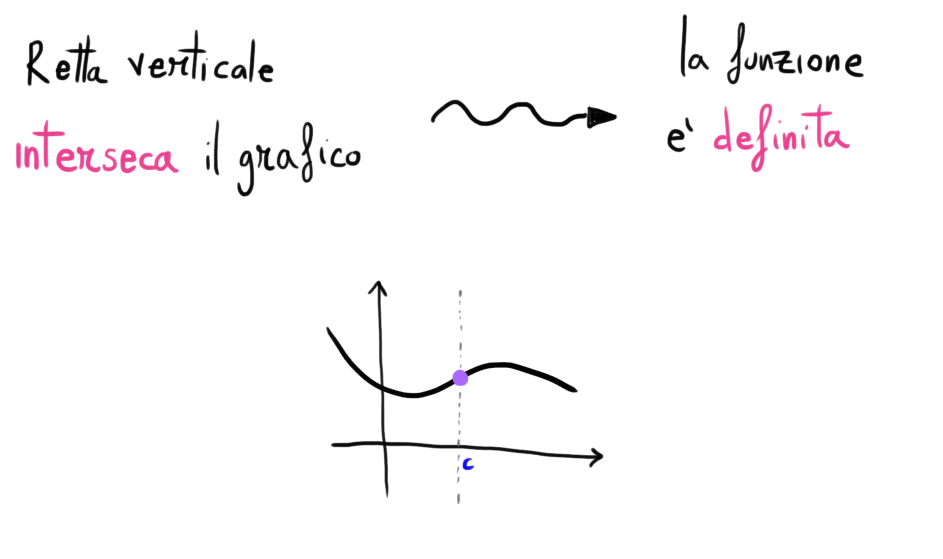 Retta verticale
interseca il grafico
la funzione
e' definita
c